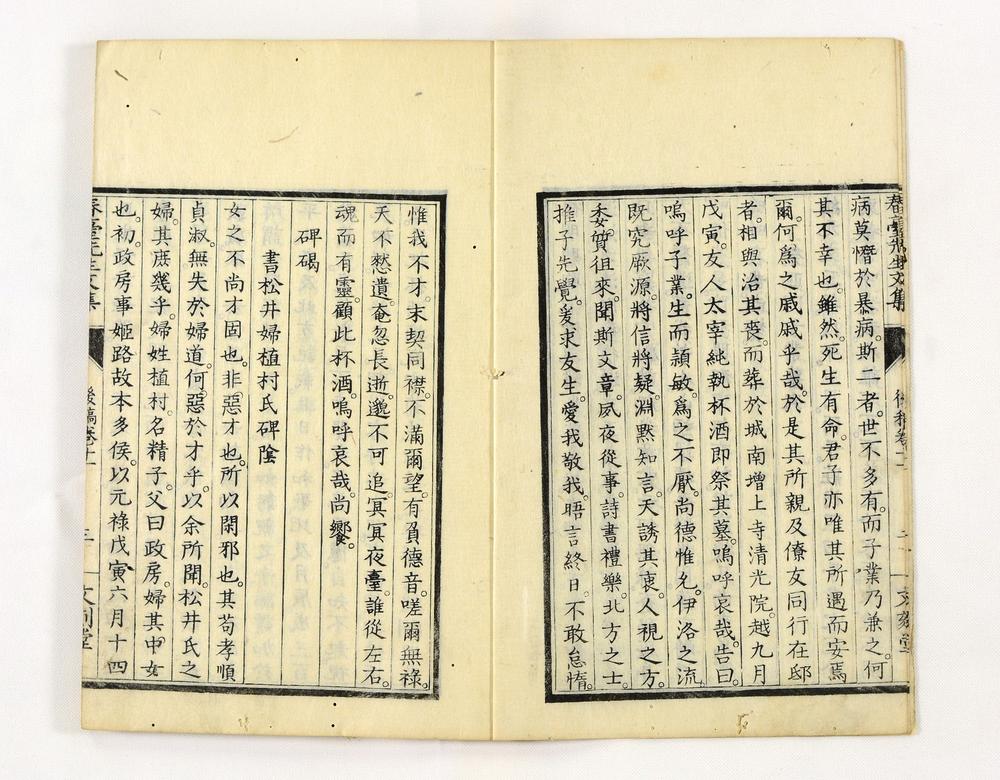 春臺先生文集
後稿卷十二
二
文刻堂
病莫憯於暴病。斯二者。世不多有。而子業乃兼之。何
其不幸也。雖然。死生有命。君子亦唯其所遇而安焉
爾。何爲之戚戚乎哉。於是其所親及僚友同行在邸
者。相與治其喪。而葬於城南增上寺清光院。越九月
戊寅。友人太宰純執杯酒。即祭其墓。嗚呼哀哉。告曰。
嗚呼子業。生而頴敏。爲之不厭。尚德惟允。伊洛之流
既究厥源。將信將疑。淵默知言。天誘其衷。人視之方。
委質徂來。聞斯文章。夙夜從事。詩書禮樂。北方之士。
推子先覺。爰求友生。愛我敬我。晤言終日。不敢怠惰。
惟我不才。末契同襟。不滿爾望。有負德音。嗟爾無祿。
天不憖遺。奄忽長逝。邈不可追。冥冥夜臺。誰從左右。
魂而有靈。顧此杯酒。嗚呼哀哉。尚饗。
碑碣
書松井婦植村氏碑陰
女之不尚才固也。非惡才也。所以閑邪也。其苟孝順
貞淑。無失於婦道。何惡於才乎。以余所聞。松井氏之
婦。其庶幾乎。婦姓植村。名精子。父曰政房。婦其中女
也。初。政房事姬路故本多侯。以元祿戊寅六月十四
春臺先生文集
後稿卷十二
三
文刻堂